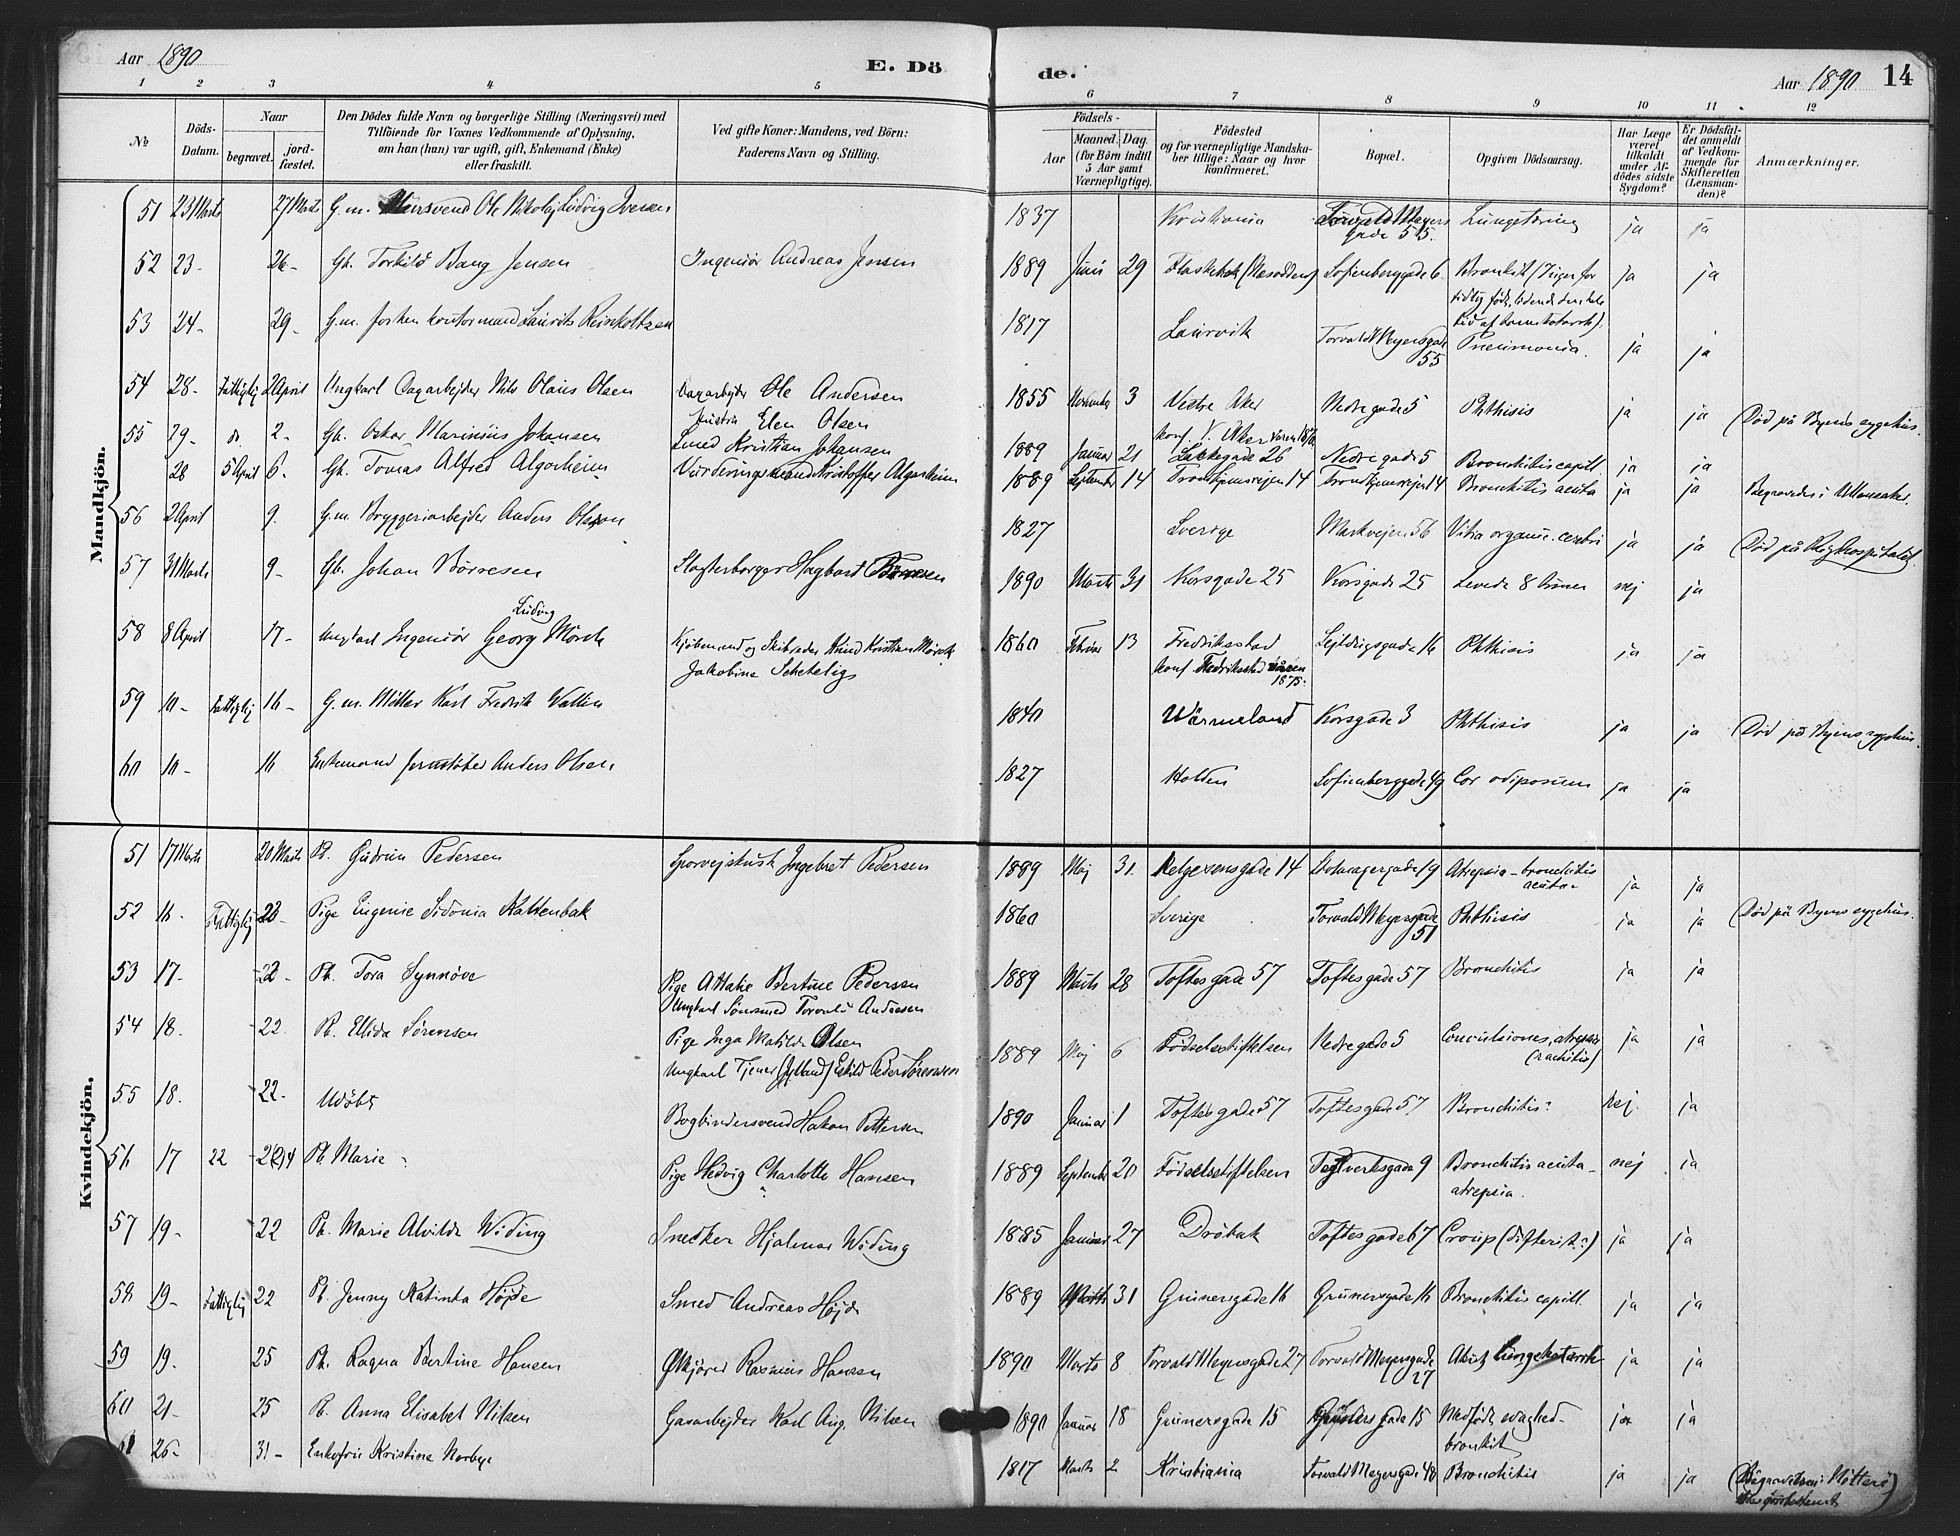 Aar 1890
E. Dö de.
Aar 1890 14
1 2 3 4 5 6 7 8 9 10 11 12
No
Döds-Datum.
Naar
begravet.
jord-fæstet.
Den Dödes fulde Navn og borgerlige Stilling (Næringsvei) med
Tilföiende for Voxnes Vedkommende af Oplysning,
om han (hun) var ugift, gift, Enkemand (Enke)
eller fraskilt.
Ved gifte Koner: Mandens, ved Börn:
Faderens Navn og Stilling.
Födsels-
Aar
Maaned. Dag.
(for Börn indtil
5 Aar samt
Værnepligtige).
Födested
og for værnepligtige Mandska-
ber tillige: Naar og hvor
konfirmeret.
Bopæl.
Opgiven Dödsaarsag.
Har Læge
været
tilkaldt
under Af-
dödes sidste
Sygdom?
Er Dödsfal-
det anmeldt
af Vedkom-
mende for
Skifteretten
(Lensman-
den)?
Anmærkninger.
Mandkjön.
51 23 Marts 27 Marts G.m. Ole Nikolaj Ludvig Iversen 1837 Kristiania Torvald Meyers gade 55. Lungetæring ja ja
52 23- 26- Gb. Torkild Bang Jensen Ingeniör Andreas Jensen 1889 Juni 29 (Næsodden) Sofienberggade 6 Bronkit ja ja
53 24- 29- G.m. Laurits Reinholtzen 1817 Laurvik Torvald Meyersgade 55 Pneumonia. ja ja
54 28- Fattiglig 2 April Ungkarl Dagarbejder Nils Olaus Olsen Dagarbejder Ole Andersen Elen Olsen 1855 November 3 Vestre Aker konf. V. Aker Nedregade 5 Phthisis ja ja Död på Byens sygehus.
55 29- do 2- Gb. Oskar Marinius Johansen Smed Kristian Johansen 1889 Januar 21 Lakkegade 26 Nedregade 5 Bronchitis capill. ja ja
28 5 April 6- Gb. Tomas Alfred Algarheim Vurderingsmand Kristoffer Algarheim 1889 September 14 Trondhjemsvejen 14 Trondhjemsvejen 14 Bronchitis acuta ja ja Begravedes i Ullensaker.
56 2 April 9. G.m. Bryggeriarbejder Anders Olsson 1827 Sverige Markvejen 56 Vitia organic. cerebri ja ja Död på Rigshospitalet.
57 31 Marts 9- Gb. Johan Börresen Hagbart Börresen 1890 Marts 31 Korsgade 25 Korsgade 25 Levede 8 timer nej ja
58 8 April 17- Ungkarl Ingeniör Georg Ludvig Mörch Kjöbmand og Skibsreder Knud Kristian Mörch Jakobine Schetelig 1860 Februar 13 Fredriksstad konf. Fredriksstad våren 1875. Sejldugsgade 16 Phthisis ja ja
59 10- Fattiglig 16- G.m. Karl Fredrik Wallin 1840 Wärmeland Korsgade 3 Phthisis ja ja Död på Byens sygehus.
60 10- 16 Enkemand Jernstöber Anders Olsen 1827 Holden Sofienberggade 49 Cor adiposum ja ja
Kvindekjön.
51 17 Marts 20 Marts Pb. Gudrun Pedersen Sporvejskusk Ingebret Pedersen 1889 Maj 31. Helgesensgade 14 Atrepsia - bronchitis acuta - ja ja
52 16- Fattiglig 23- Pige Eugenie Sidonia Kattenbak 1860 Sverige Torvald Meyersgade 51 Phthisis ja ja Död på Byens sygehus.
53 17- 22- Pb. Tora Synnöve Pige Attalie Bertine Pedersen Ungkarl Torvald Andresen 1889 Marts 28 Toftesgade 57 Toftesgade 57 Bronchitis ja ja
54 18. 22. Pb. Ellida Sörensen Pige Inga Matilde Olsen Ungkarl Tjener (Jylland) Eskild Peder Sörensen 1889 Maj 6 Födselsstiftelsen Nedregade 5 Convulsiones, atrepsia (rachitis) ja ja
55 18. 22. Udöbt Bogbindersvend Hakon Pettersen 1890 Januar 1 Toftesgade 57 Toftesgade 57 Bronchitis? nej ja
56 17 22 24 Pb. Marie - Pige Hedvig Charlotte Hansen 1889 September 20 Födselsstiftelsen Teglverksgade 9 Bronchitis acuta - atrepsia. nej ja
57 19- 22 Pb. Marie Alvilde Widing Snedker Hjalmar Widing 1885 Januar 27 Dröbak Toftesgade 67 Croup (difterit?) ja ja
58 19- Fattiglig 22 Pb. Jenny Katinka Höjde Smed Andreas Höjde 1889 Marts 31 Grünersgade 16 Grünersgade 16 Bronchitis capill. ja ja
59 19. 25 Pb. Ragna Bertine Hansen Rasmus Hansen 1890 Marts 8 Torvald Meyersgade 27 Torvald Meyersgade 27 Akut lungekatarrh ja ja
60 21- 25 Pb. Anna Elisabet Nilsen Gasarbejder Karl Aug. Nilsen 1890 Januar 18 Grünersgade 15 Grünersgade 15 Medfödt svaghed - bronkit ja ja
61 26- 31- Enkefru Kristine Norbye 1817 Marts 2 Kristiania Torvald Meyersgade 40 Bronchitis ja ja